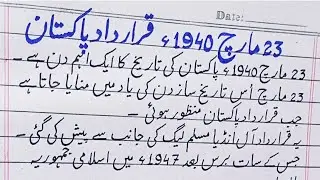 Date:
23 مارچ 1940ء قرارداد پاکستان
23 مارچ 1940ء پاکستان کی تاریخ کا ایک اہم دن ہے ۔
23 مارچ اس تاریخ ساز دن کی یاد میں منایا جاتا ہے
جب قرارداد پاکستان منظور ہوئی ۔
یہ قرارداد آل انڈیا مسلم لیگ کی جانب سے پیش کی گئی ۔
جس کے سات برس بعد 1947ء میں اسلامی جمہوریہ